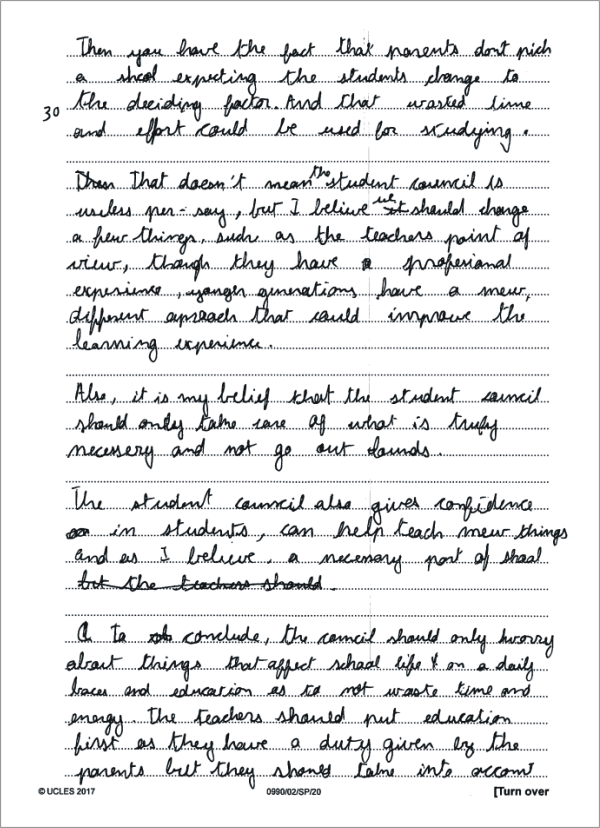 Then you have the fact that parents dont pich
a shcol expecting the students change to
30 the deciding factor. And that wasted time
and effort could be used for studying.
Then That doesn't mean the student council is
useless per-say, but I believe we should change
a few things, such as the teachers point of
view, though they have profesional
experience, yanger generations have a new,
different aproach that could improve the
learning experience.
Also, it is my belief that the student council
should only take care of what is truly
necessery and not go out bounds.
The student council also gives confidence
in students, can help teach new things
and as I believe, a necessary part of shool
but the teachers should.
To conclude, the council should only worry
about things that affect school life & on a daily
baces and education as to not waste time and
energy. The teachers should put education
first as they have a duty given by the
parents but they should take into account
© UCLES 2017 0990/02/SP/20 [Turn over